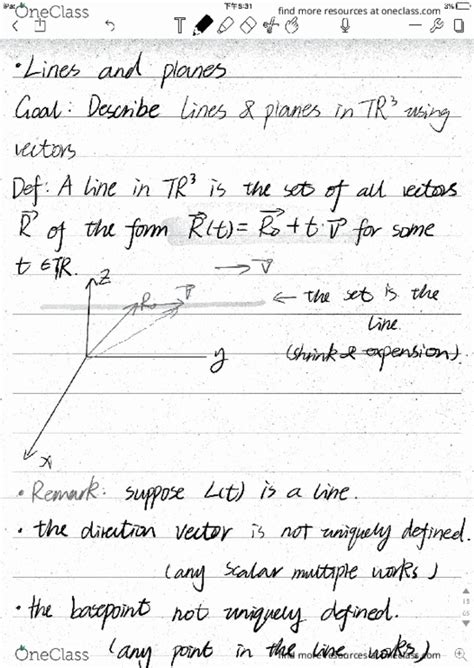 iPad
下午5:31
3%
OneClass
find more resources at oneclass.com
T
• Lines and planes
Goal: Describe lines & planes in TR³ using
vectors
Def: A line in TR³ is the sets of all vectors
R⃗ of the form R⃗(t) = R⃗₀ + t·v⃗ for some
t ∈ TR.
→ v⃗
z
R₀
v⃗
← the set is the
line.
(shrink & expension).
y
x
• Remark: suppose L(t) is a line.
• the direction vector is not uniquely defined.
(any scalar multiple works)
• the basepoint not uniquely defined.
(any point in the line works)
OneClass
find more resources at oneclass.com